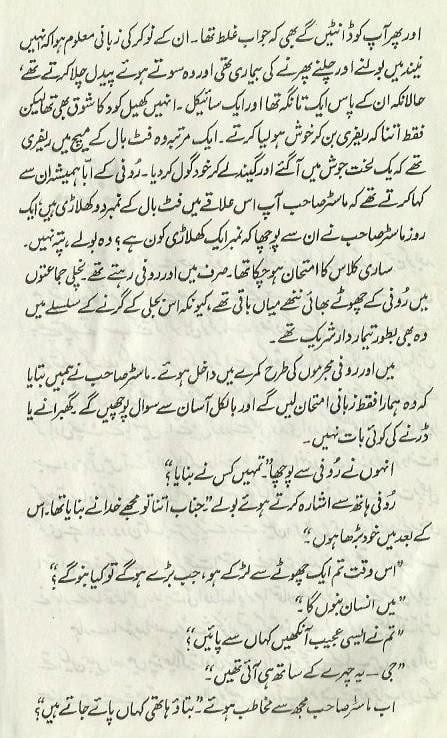 اور پھر آپ کو ڈانٹیں گے بھی کہ جواب غلط تھا۔ ان کے نوکر کی زبانی معلوم ہوا کہ انہیں
نیند میں بولنے اور چلنے پھرنے کی بیماری تھی اور وہ سوتے ہوئے پیدل چلا کرتے تھے،
حالانکہ ان کے پاس ایک تانگہ تھا اور ایک سائیکل۔ انہیں کھیل کود کا شوق بھی تھا لیکن
فقط اتنا کہ ریفری بن کر خوش ہو لیا کرتے۔ ایک مرتبہ وہ فٹ بال کے میچ میں ریفری
تھے کہ یک لخت جوش میں آ گئے اور گیند لے کر خود گول کر دیا۔ رُوفی کے ابّا ہمیشہ ان سے
کہا کرتے تھے کہ ماسٹر صاحب آپ اس علاقے میں فٹ بال کے نمبر دو کھلاڑی ہیں؛ ایک
روز ماسٹر صاحب نے ان سے پوچھا کہ نمبر ایک کھلاڑی کون ہے؟ وہ بولے، پتہ نہیں۔
ساری کلاس کا امتحان ہو چکا تھا۔ صرف میں اور روفی رہتے تھے۔ نچلی جماعتوں
میں رُوفی کے چھوٹے بھائی ننھے میاں باقی تھے، کیونکہ اس بجلی کے گرنے کے سلسلے میں
وہ بھی بطور تیماردار شریک تھے۔
میں اور روفی مجرموں کی طرح کمرے میں داخل ہوئے۔ ماسٹر صاحب نے ہمیں بتایا
کہ وہ ہمارا فقط زبانی امتحان لیں گے اور بالکل آسان سے سوال پوچھیں گے۔ گھبرانے یا
ڈرنے کی کوئی بات نہیں۔
انہوں نے رُوفی سے پوچھا۔ ”تمہیں کس نے بنایا؟“
رُوفی ہاتھ سے اشارہ کرتے ہوئے بولے ”جناب اتنا تو مجھے خدا نے بنایا تھا۔ اس
کے بعد میں خود بڑھا ہوں۔“
”اس وقت تم ایک چھوٹے سے لڑکے ہو، جب بڑے ہو گے تو کیا بنو گے؟“
”میں انسان بنوں گا۔“
”تم نے ایسی عجیب آنکھیں کہاں سے پائیں؟“
”جی — یہ چہرے کے ساتھ ہی آئی تھیں۔“
اب ماسٹر صاحب مجھ سے مخاطب ہوئے۔ ”بتاؤ ہاتھی کہاں پائے جاتے ہیں؟“